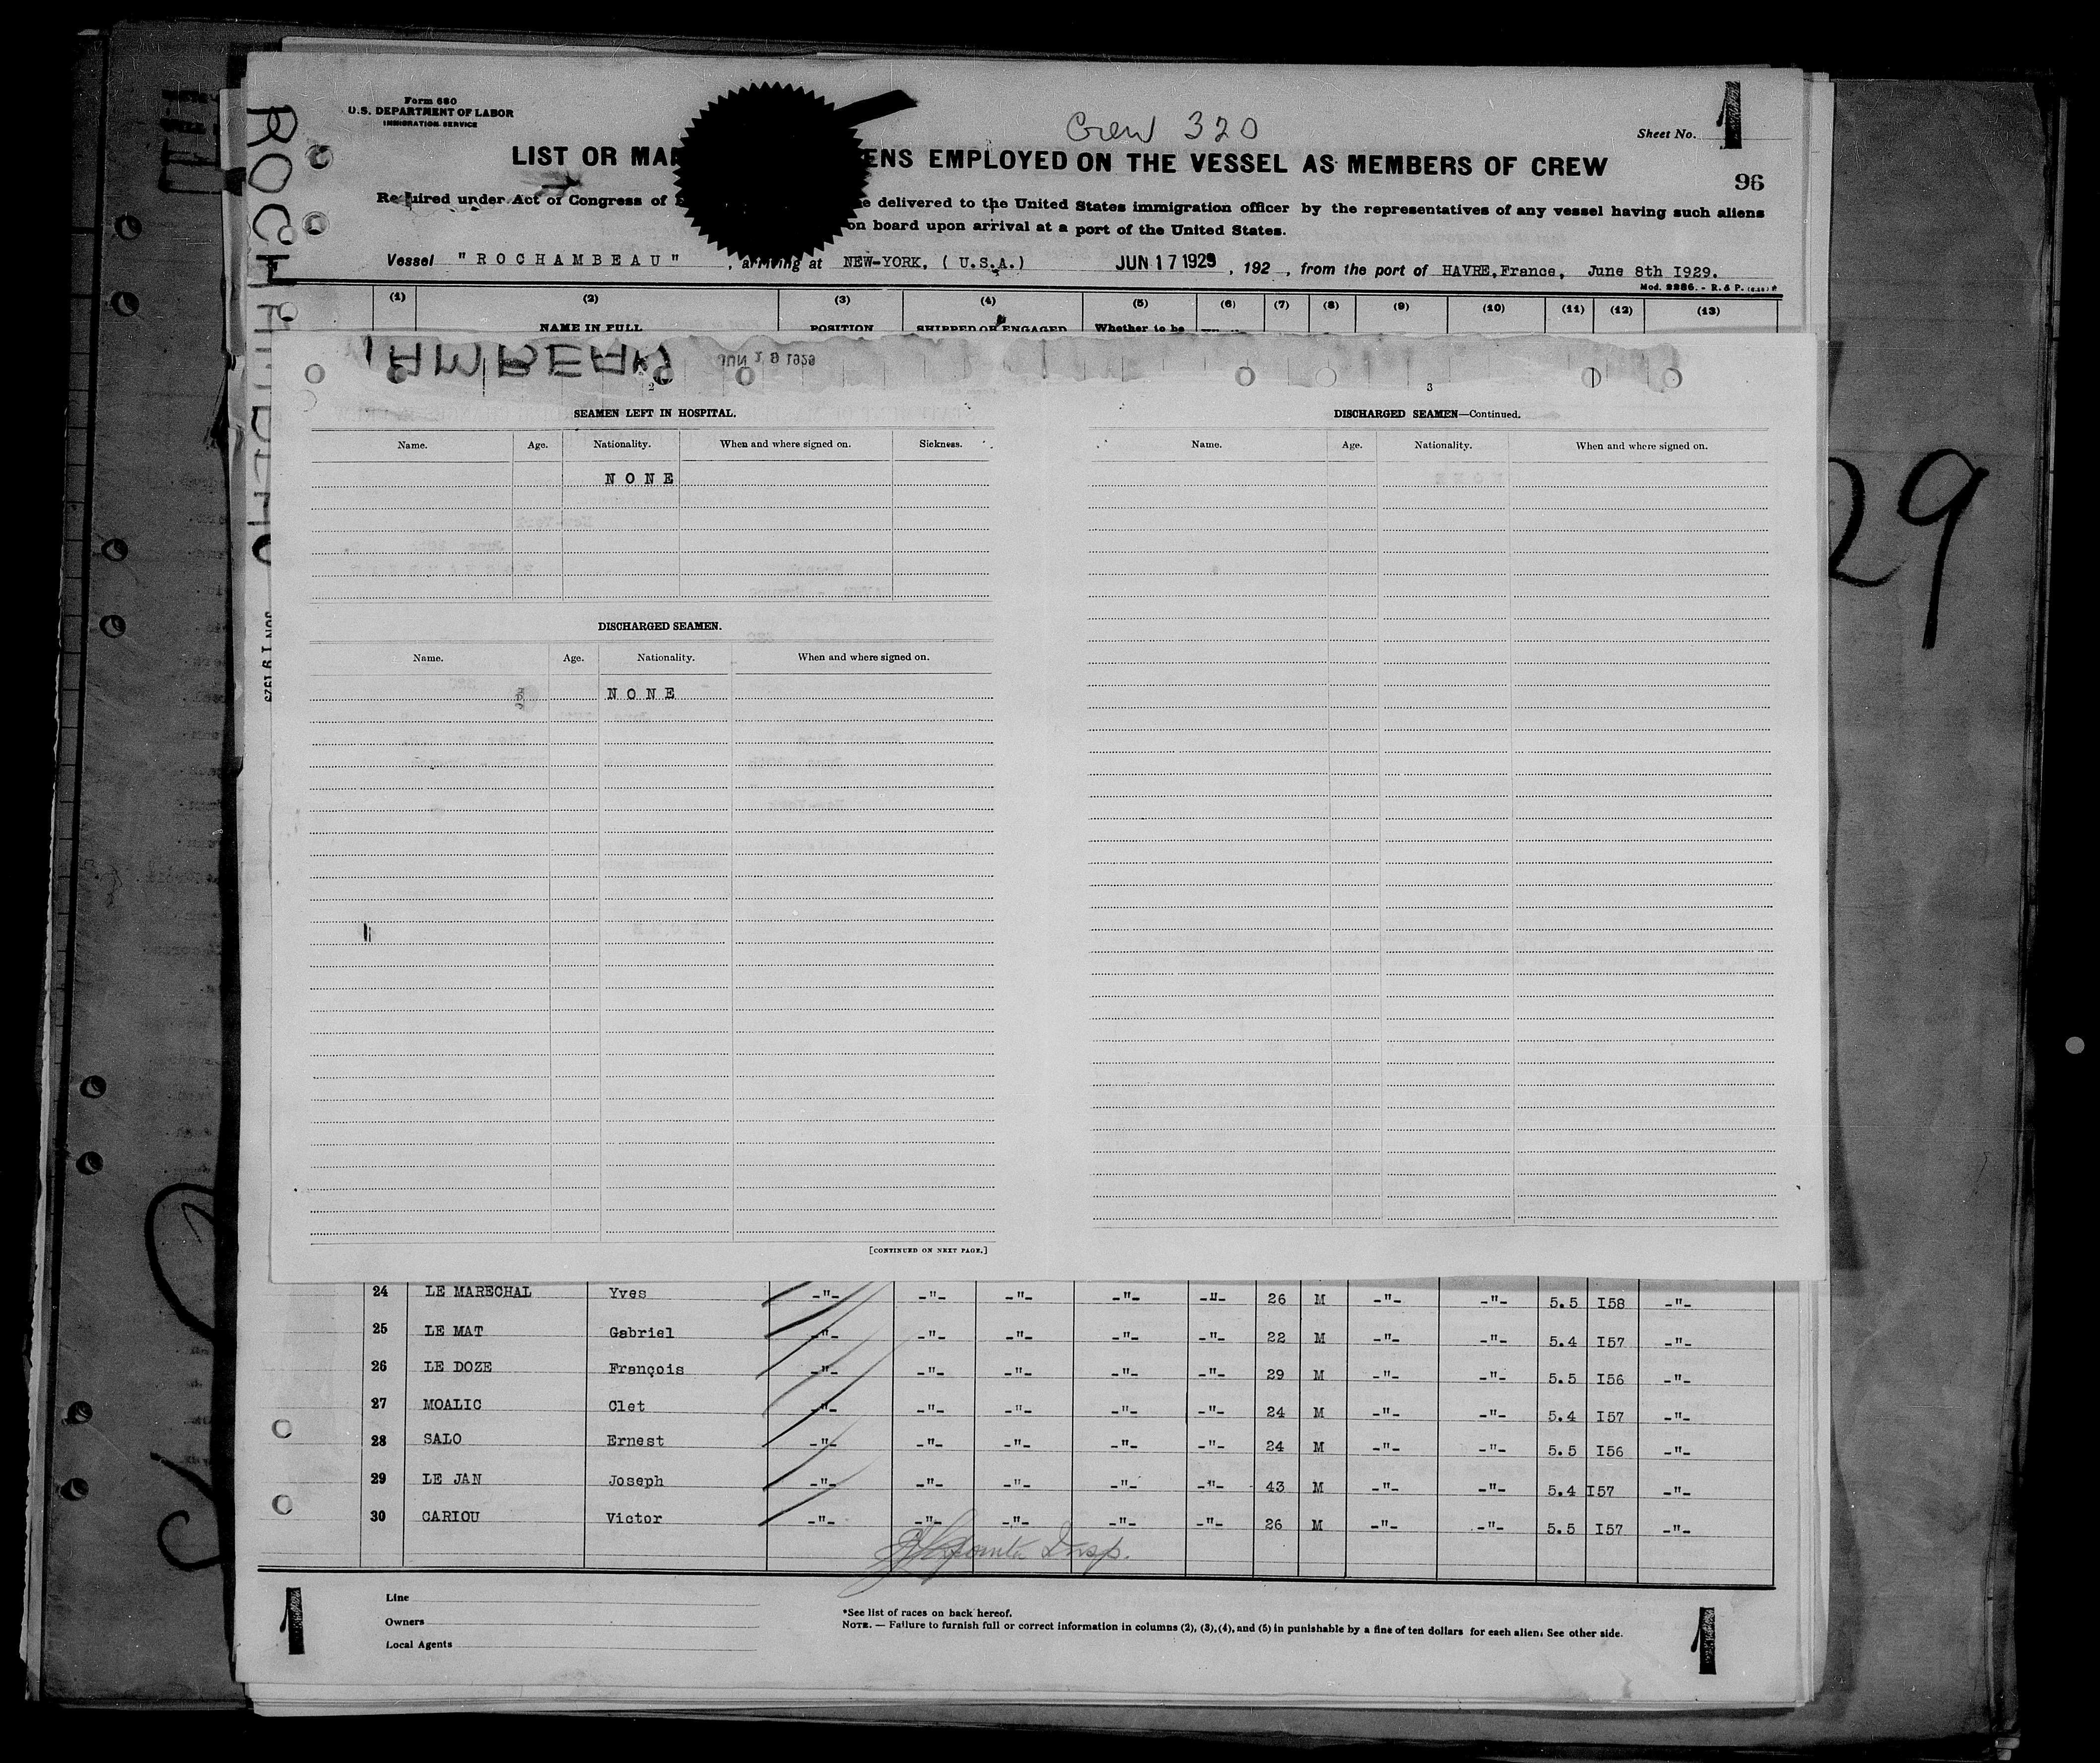 Form 680
U.S. DEPARTMENT OF LABOR
IMMIGRATION SERVICE
Crew 320
Sheet No. 1
LIST OR MAN ENS EMPLOYED ON THE VESSEL AS MEMBERS OF CREW
96
Required under Act of Congress of e delivered to the United States immigration officer by the representatives of any vessel having such aliens
on board upon arrival at a port of the United States.
Vessel "ROCHAMBEAU" , arriving at NEW-YORK, (U.S.A.) JUN 17 1929 , 192 , from the port of HAVRE, France, June 8th I929.
Mod. 2286. - R. & P.
(1) (2) (3) (4) (5) (6) (7) (8) (9) (10) (11) (12) (13)
NAME IN FULL POSITION SHIPPED OR ENGAGED Whether to be
ROCHAMBEAU
JUN 19 1929
29
2
SEAMEN LEFT IN HOSPITAL.
Name. Age. Nationality. When and where signed on. Sickness.
NONE
DISCHARGED SEAMEN.
Name. Age. Nationality. When and where signed on.
NONE
[CONTINUED ON NEXT PAGE.]
3
DISCHARGED SEAMEN—Continued.
Name. Age. Nationality. When and where signed on.
24 LE MARECHAL Yves -"- -"- -"- -"- -"- 26 M -"- -"- 5.5 I58 -"-
25 LE MAT Gabriel -"- -"- -"- -"- -"- 22 M -"- -"- 5.4 I57 -"-
26 LE DOZE François -"- -"- -"- -"- -"- 29 M -"- -"- 5.5 I56 -"-
27 MOALIC Clet -"- -"- -"- -"- -"- 24 M -"- -"- 5.4 I57 -"-
28 SALO Ernest -"- -"- -"- -"- -"- 24 M -"- -"- 5.5 I56 -"-
29 LE JAN Joseph -"- -"- -"- -"- -"- 43 M -"- -"- 5.4 I57 -"-
30 CARIOU Victor -"- -"- -"- -"- -"- 26 M -"- -"- 5.5 I57 -"-
Insp.
Line
Owners
Local Agents
*See list of races on back hereof.
NOTE. — Failure to furnish full or correct information in columns (2), (3), (4), and (5) in punishable by a fine of ten dollars for each alien. See other side.
1
1